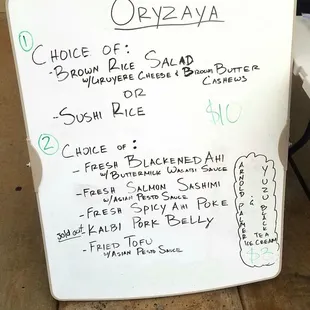 ORYZAYA
1 CHOICE OF:
- BROWN RICE SALAD
W/GRUYERE CHEESE & BROWN BUTTER
CASHEWS
OR
- SUSHI RICE
$10
2 CHOICE OF:
- FRESH BLACKENED AHI
W/BUTTERMILK WASABI SAUCE
- FRESH SALMON SASHIMI
W/ASIAN PESTO SAUCE
- FRESH SPICY AHI POKE
sold out KALBI PORK BELLY
- FRIED TOFU
W/ASIAN PESTO SAUCE
ARNOLD PALMER
&
YUZU BLACK
TEA
ICE CREAM!
$3